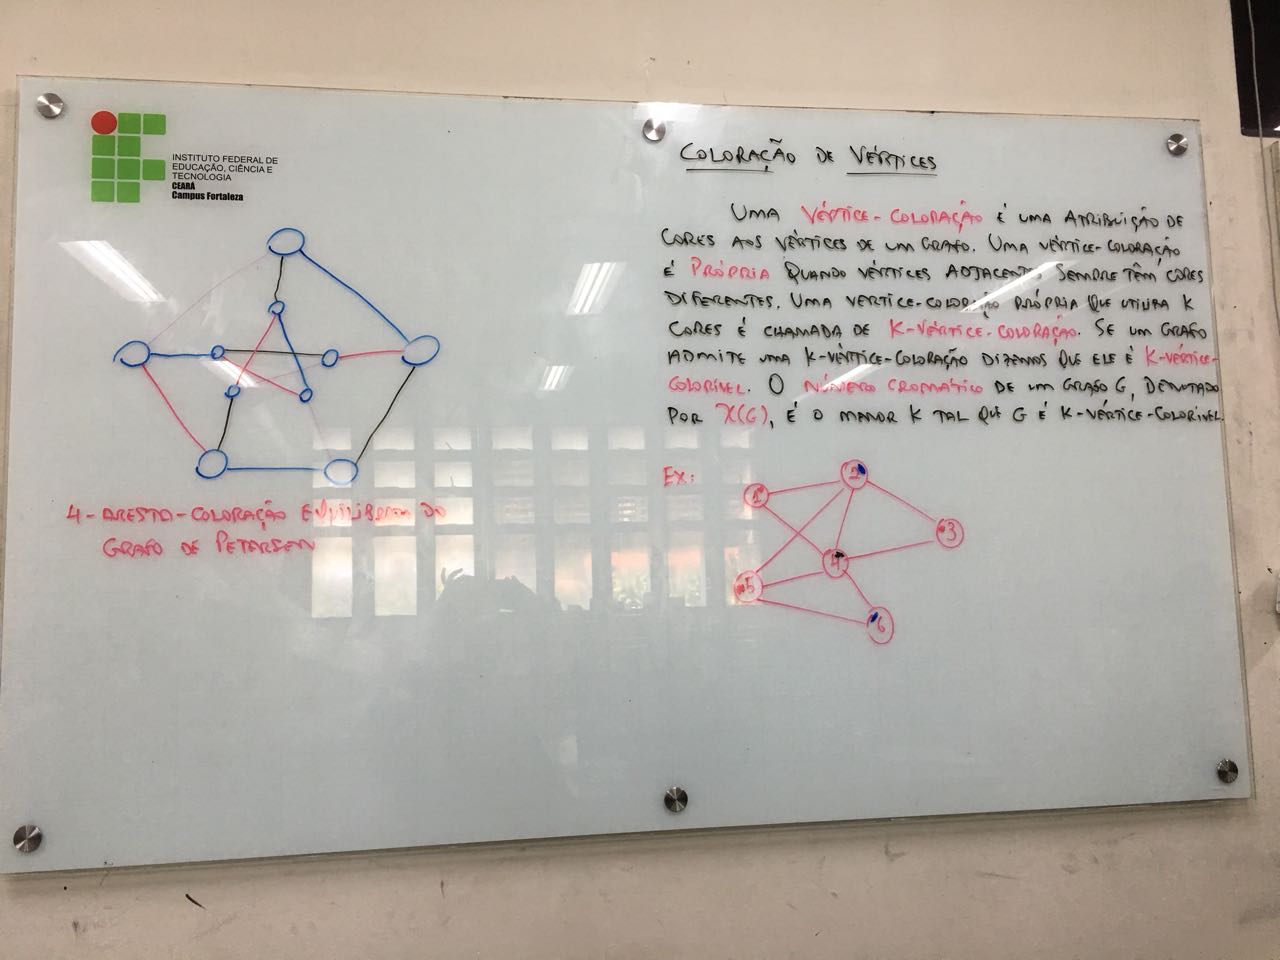 INSTITUTO FEDERAL DE
EDUCAÇÃO, CIÊNCIA E
TECNOLOGIA
CEARÁ
Campus Fortaleza
4-ARESTA-COLORAÇÃO EQUILIBRADA DO
GRAFO DE PETERSEN
COLORAÇÃO DE VÉRTICES
UMA VÉRTICE-COLORAÇÃO É UMA ATRIBUIÇÃO DE
CORES AOS VÉRTICES DE UM GRAFO. UMA VÉRTICE-COLORAÇÃO
É PRÓPRIA QUANDO VÉRTICES ADJACENTES SEMPRE TÊM CORES
DIFERENTES. UMA VÉRTICE-COLORAÇÃO PRÓPRIA QUE UTILIZA K
CORES É CHAMADA DE K-VÉRTICE-COLORAÇÃO. SE UM GRAFO
ADMITE UMA K-VÉRTICE-COLORAÇÃO DIZEMOS QUE ELE É K-VÉRTICE-
COLORÍVEL. O NÚMERO CROMÁTICO DE UM GRAFO G, DENOTADO
POR χ(G), É O MENOR K TAL QUE G É K-VÉRTICE-COLORÍVEL.
EX:
1
2
3
4
5
6